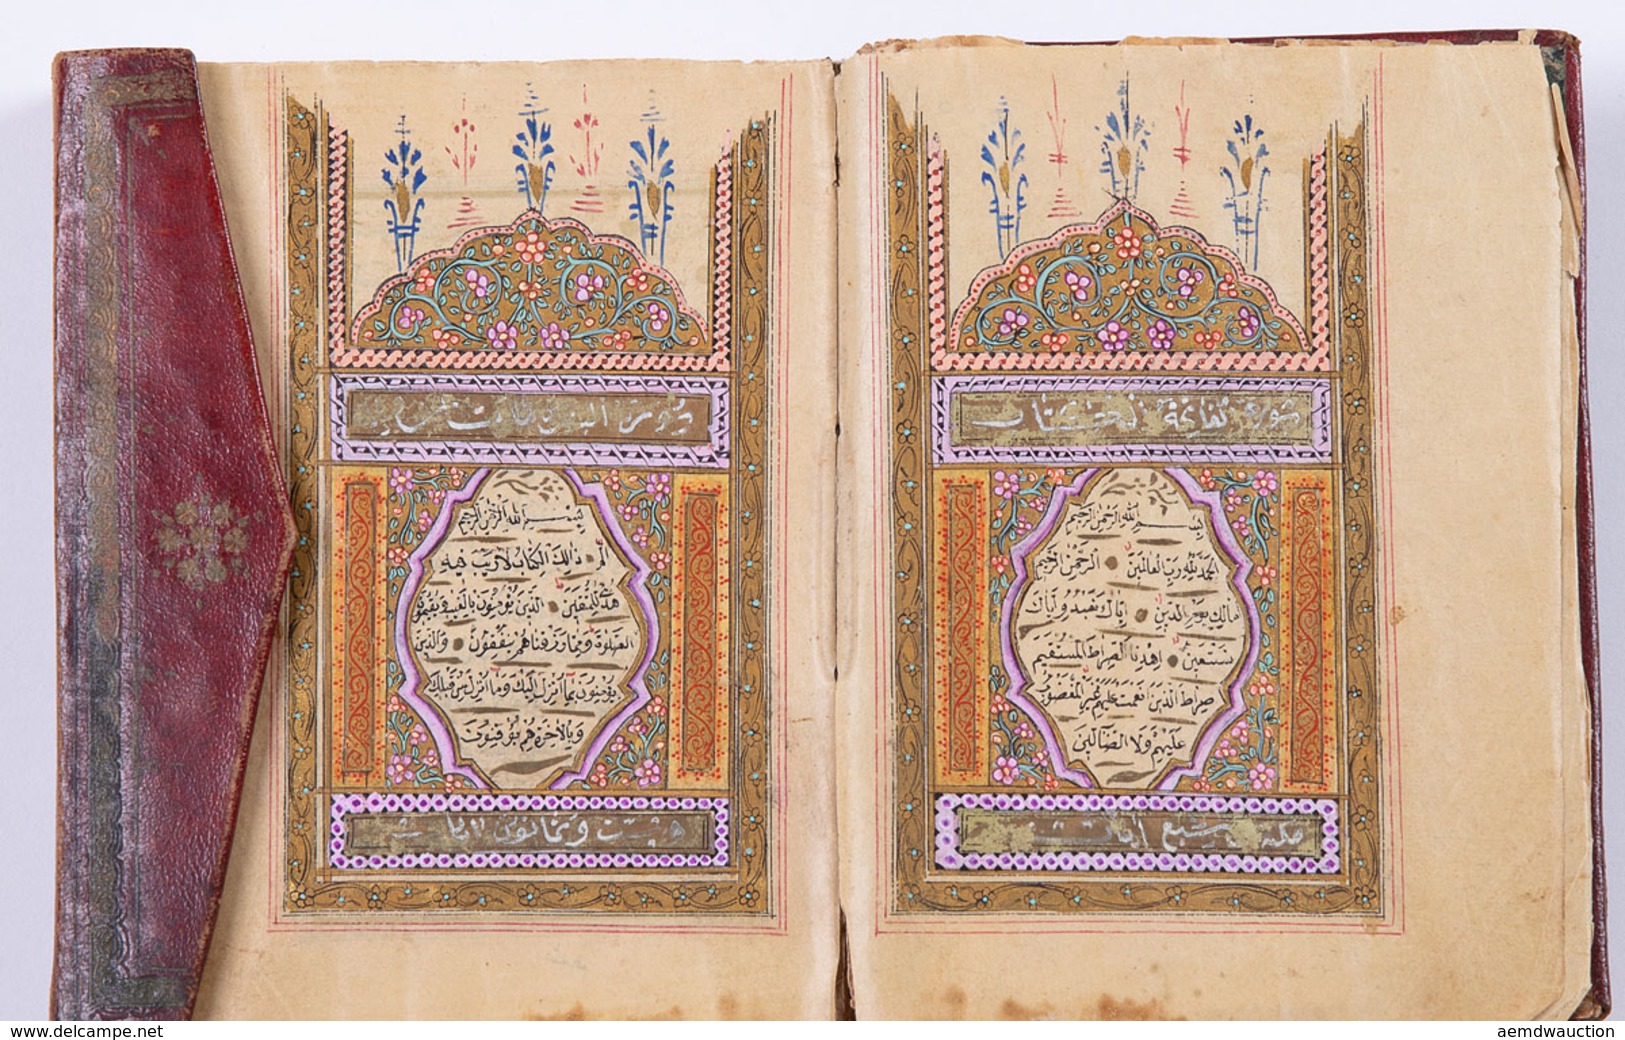 سورة فاتحة الكتاب
بسم الله الرحمن الرحيم
الحمد لله رب العالمين الرحمن الرحيم
مالك يوم الدين اياك نعبد و اياك
نستعين اهدنا الصراط المستقيم
صراط الذين انعمت عليهم غير المغضوب
عليهم ولا الضالين
سبع آيات
سورة البقرة
بسم الله الرحمن الرحيم
الم ذالك الكتاب لا ريب فيه
هدى للمتقين الذين يؤمنون بالغيب و يقيمون
الصلوة ومما رزقناهم ينفقون والذين
يؤمنون بما انزل اليك وما انزل من قبلك
وبالاخرة هم يوقنون
وثمانون آيات
www.delcampe.net
aemdwauction